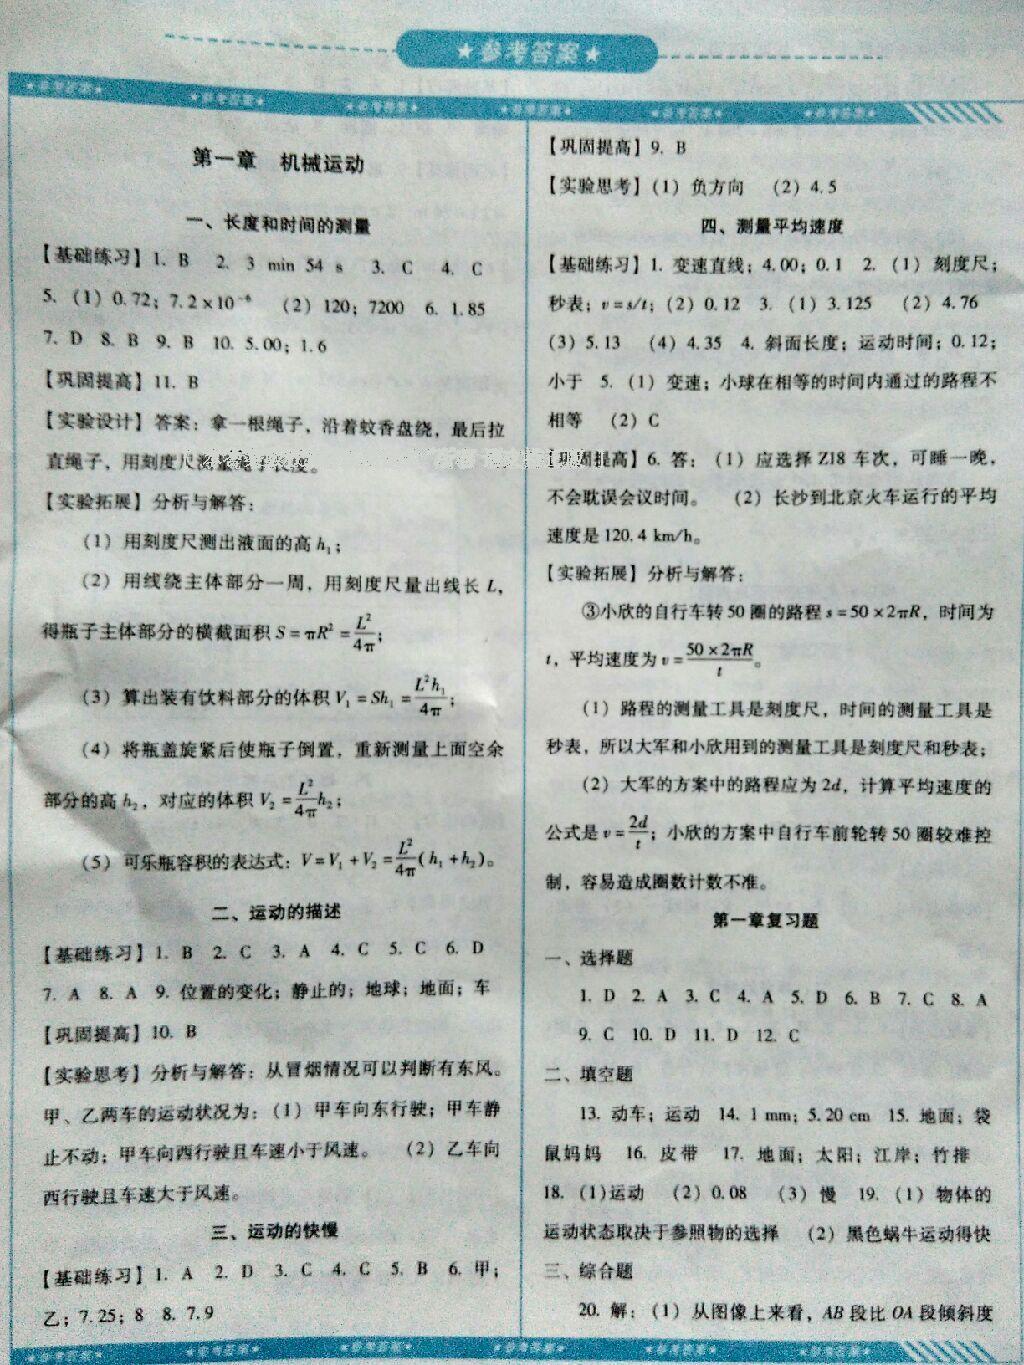 ★参考答案★
第一章 机械运动
一、长度和时间的测量
【基础练习】1. B 2. 3 min 54 s 3. C 4. C
5. (1) 0.72；7.2×10⁻⁶ (2) 120；7200 6. 1.85
7. D 8. B 9. B 10. 5.00；1.6
【巩固提高】11. B
【实验设计】答案：拿一根绳子，沿着蚊香盘绕，最后拉
直绳子，用刻度尺测量绳子长度。
【实验拓展】分析与解答：
（1）用刻度尺测出液面的高 h₁；
（2）用线绕主体部分一周，用刻度尺量出线长 L，
得瓶子主体部分的横截面积 S = πR² = L²/4π；
（3）算出装有饮料部分的体积 V₁ = Sh₁ = L²h₁/4π；
（4）将瓶盖旋紧后使瓶子倒置，重新测量上面空余
部分的高 h₂，对应的体积 V₂ = L²/4π h₂；
（5）可乐瓶容积的表达式：V = V₁ + V₂ = L²/4π (h₁ + h₂)。
二、运动的描述
【基础练习】1. B 2. C 3. A 4. C 5. C 6. D
7. A 8. A 9. 位置的变化；静止的；地球；地面；车
【巩固提高】10. B
【实验思考】分析与解答：从冒烟情况可以判断有东风。
甲、乙两车的运动状况为：（1）甲车向东行驶；甲车静
止不动；甲车向西行驶且车速小于风速。 （2）乙车向
西行驶且车速大于风速。
三、运动的快慢
【基础练习】1. A 2. D 3. C 4. C 5. B 6. 甲；
乙；7.25；8 8. 7.9
【巩固提高】9. B
【实验思考】（1）负方向 （2）4.5
四、测量平均速度
【基础练习】1. 变速直线；4.00；0.1 2. （1）刻度尺；
秒表；v = s/t；（2）0.12 3. （1）3.125 （2）4.76
（3）5.13 （4）4.35 4. 斜面长度；运动时间；0.12；
小于 5. （1）变速；小球在相等的时间内通过的路程不
相等 （2）C
【巩固提高】6. 答：（1）应选择 Z18 车次，可睡一晚，
不会耽误会议时间。 （2）长沙到北京火车运行的平均
速度是 120.4 km/h。
【实验拓展】分析与解答：
③小欣的自行车转 50 圈的路程 s = 50 × 2πR，时间为
t，平均速度为 v = 50×2πR/t。
（1）路程的测量工具是刻度尺，时间的测量工具是
秒表，所以大军和小欣用到的测量工具是刻度尺和秒表；
（2）大军的方案中的路程应为 2d，计算平均速度的
公式是 v = 2d/t；小欣的方案中自行车前轮转 50 圈较难控
制，容易造成圈数计数不准。
第一章复习题
一、选择题
1. D 2. A 3. C 4. A 5. D 6. B 7. C 8. A
9. C 10. D 11. D 12. C
二、填空题
13. 动车；运动 14. 1 mm；5.20 cm 15. 地面；袋
鼠妈妈 16. 皮带 17. 地面；太阳；江岸；竹排
18. （1）运动 （2）0.08 （3）慢 19. （1）物体的
运动状态取决于参照物的选择 （2）黑色蜗牛运动得快
三、综合题
20. 解：（1）从图像上来看，AB 段比 OA 段倾斜度